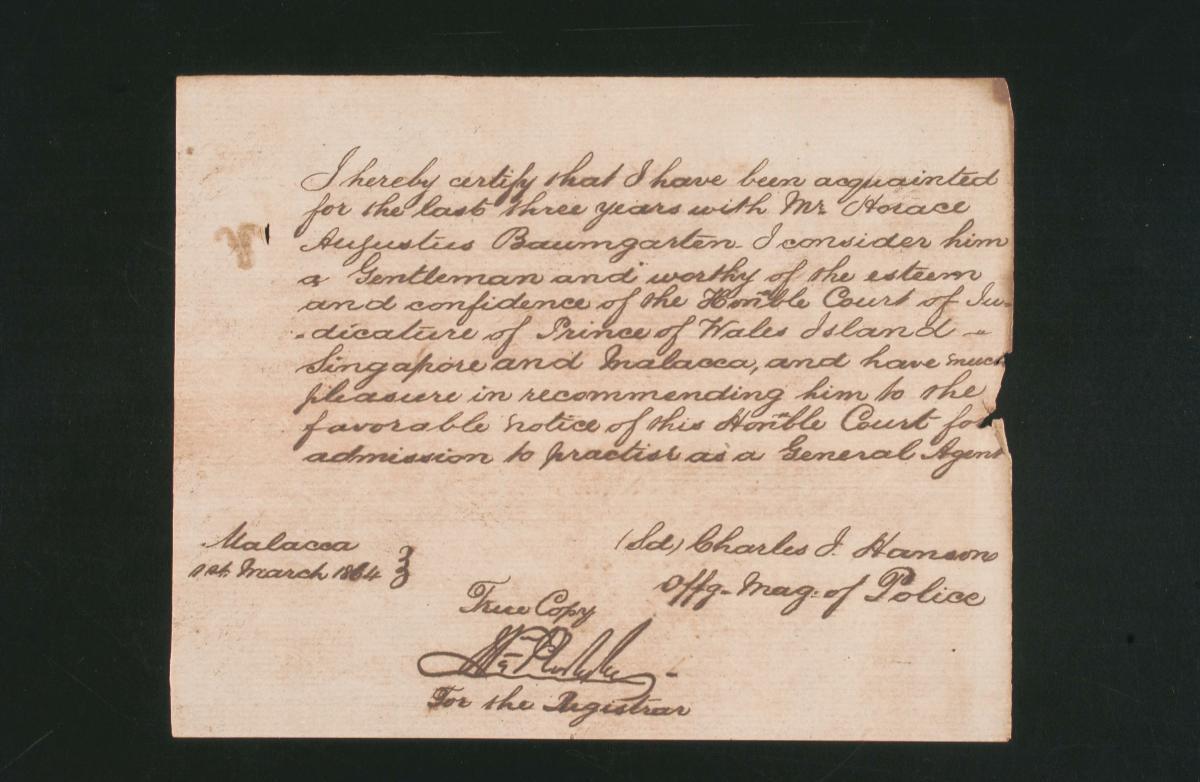 I hereby certify that I have been acquainted
for the last three years with Mr Horace
Augustus Baumgarten - I consider him
a Gentleman and worthy of the esteem
and confidence of the Honble Court of Ju-
-dicature of Prince of Wales Island -
Singapore and Malacca, and have much
pleasure in recommending him to the
favorable notice of this Honble Court for
admission to practise as a General Agent
Malacca
1st March 1864
(Sd) Charles J. Hanson
Offg. Mag. of Police
True Copy
For the Registrar